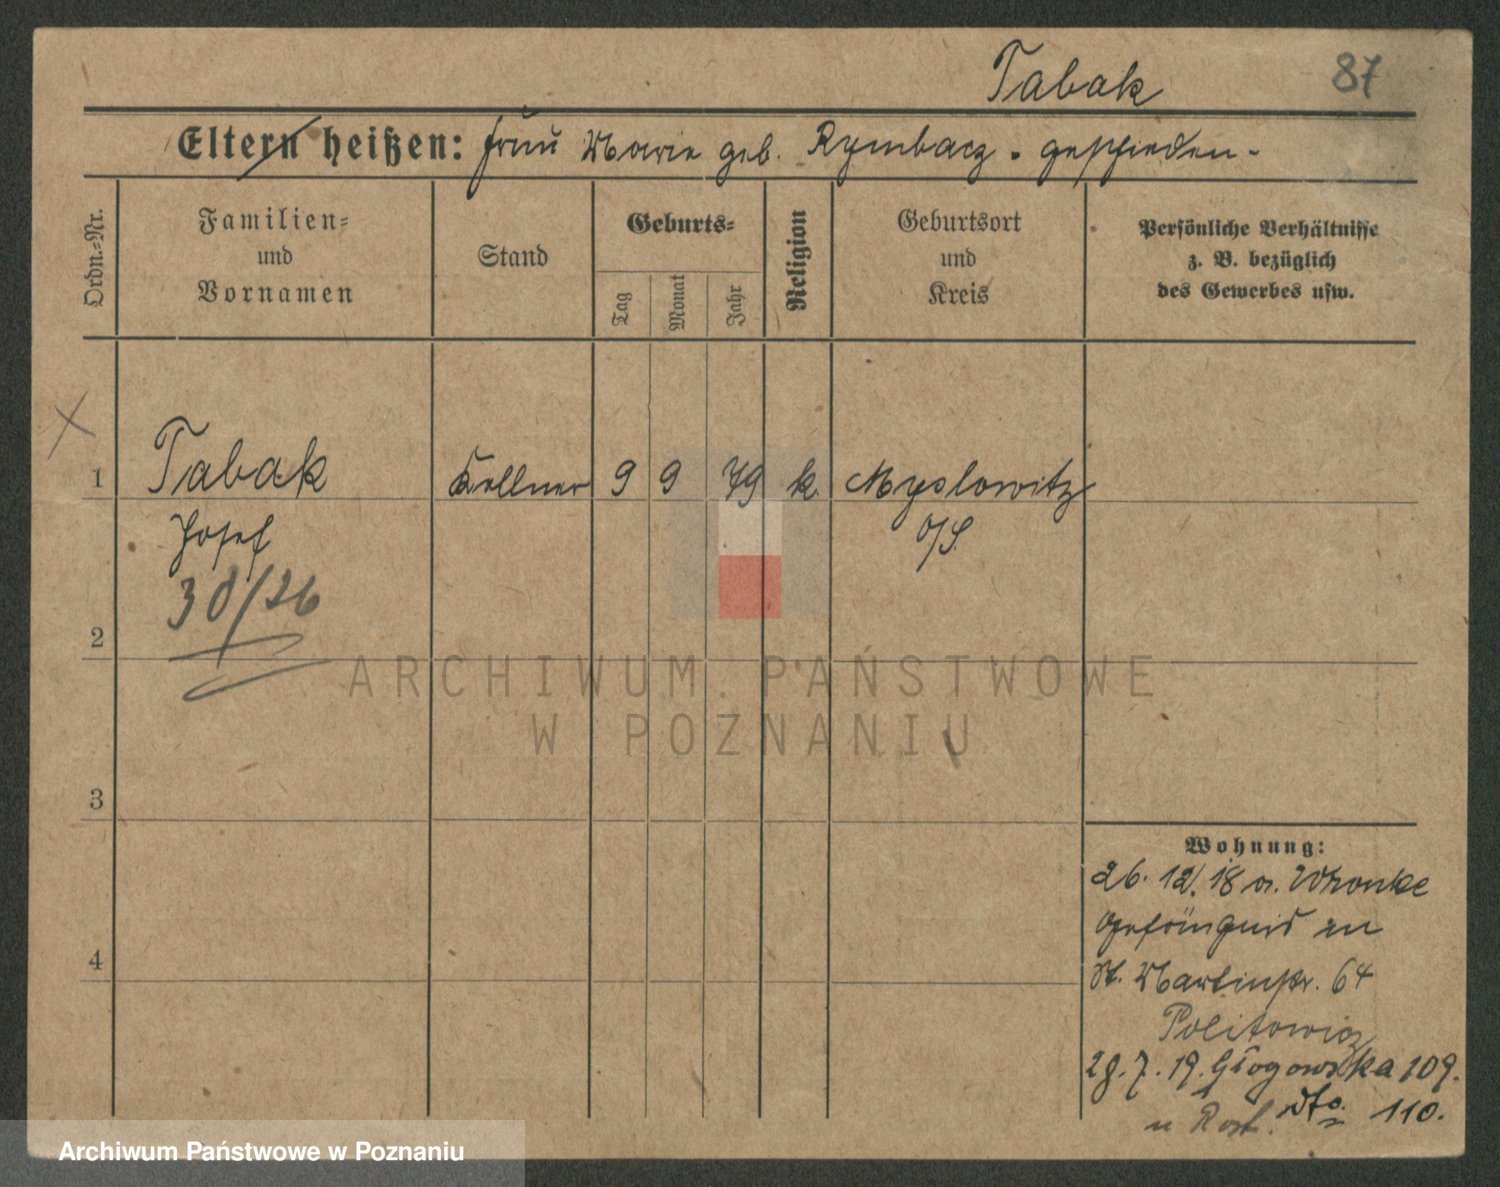 Tabak
87
Eltern heißen: Frau Marie geb. Rymbacz. geschieden.
Ordn.-Nr.
Familien-
und
Vornamen
Stand
Geburts-
Tag
Monat
Jahr
Religion
Geburtsort
und
Kreis
Persönliche Verhältnisse
z. B. bezüglich
des Gewerbes usw.
1 Tabak Kellner 9 9 79 k. Myslowitz
Josef O/S.
30/26
2
3
4
ARCHIWUM PAŃSTWOWE
W POZNANIU
Wohnung:
26. 12. 18 v. Wronke
Gefängnis in
St. Martinstr. 64
Politowicz
28. 7. 19. Głogowska 109.
u Rost. dto. 110.
Archiwum Państwowe w Poznaniu